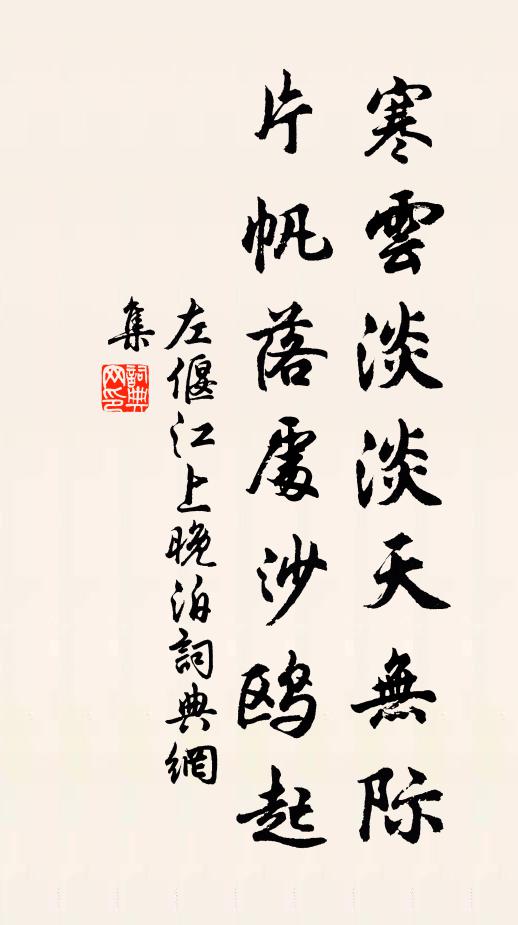 寒雲淡淡天無际
片帆落處沙鸥起
左偃江上晚泊詞典網
集
詞典
网印